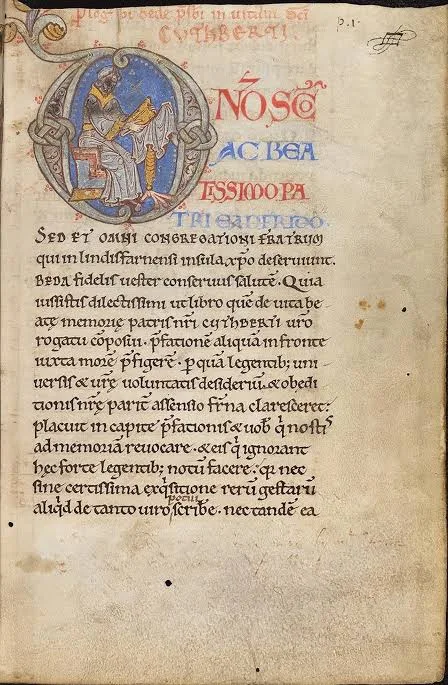 plog' bede p̄sb̄i in vitam sc̄i
CUTHBERTI.
p. 1.
DNO SCO
AC BEA
TISSIMO PA
TRI EADFRIDO.
SED ET OMNI CONGREGATIONI FRATRUM
qui in lindisfarnensi insula xp̄o deserviunt.
BEDA fidelis uester conseruus salutē. Quia
iussistis dilectissimi ut libro quē de uita be-
atę memorię patris nr̄i CUTHBERTI uro
rogatu cōposui. p̄fationē aliquā in fronte
iuxta morē p̄figerē. p quā legentib; uni-
uersis & urę voluntatis desideriū. & obedi
tionis nr̄ę parit̄ assensio fr̄na claresceret:
placuit in capite p̄fationis & uob̄ q̇ nostis
ad memoriam reuocare. & eis q̇ ignorant
hęc forte legentib; notū facere. qr nec
sine certissima exq̇sitione rerū gestarū
aliq̇d de tanto uiro scribe. nec tandē ea
potui